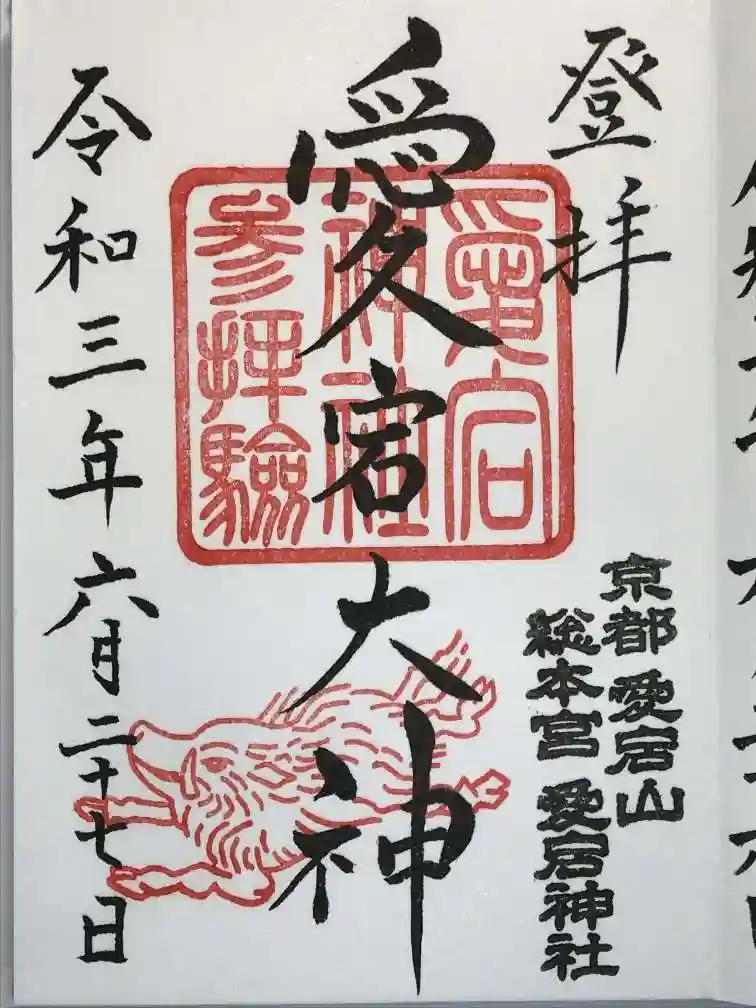 登拝
愛宕大神
愛宕
神社
参拝験
京都 愛宕山
総本宮 愛宕神社
令和三年六月二十七日